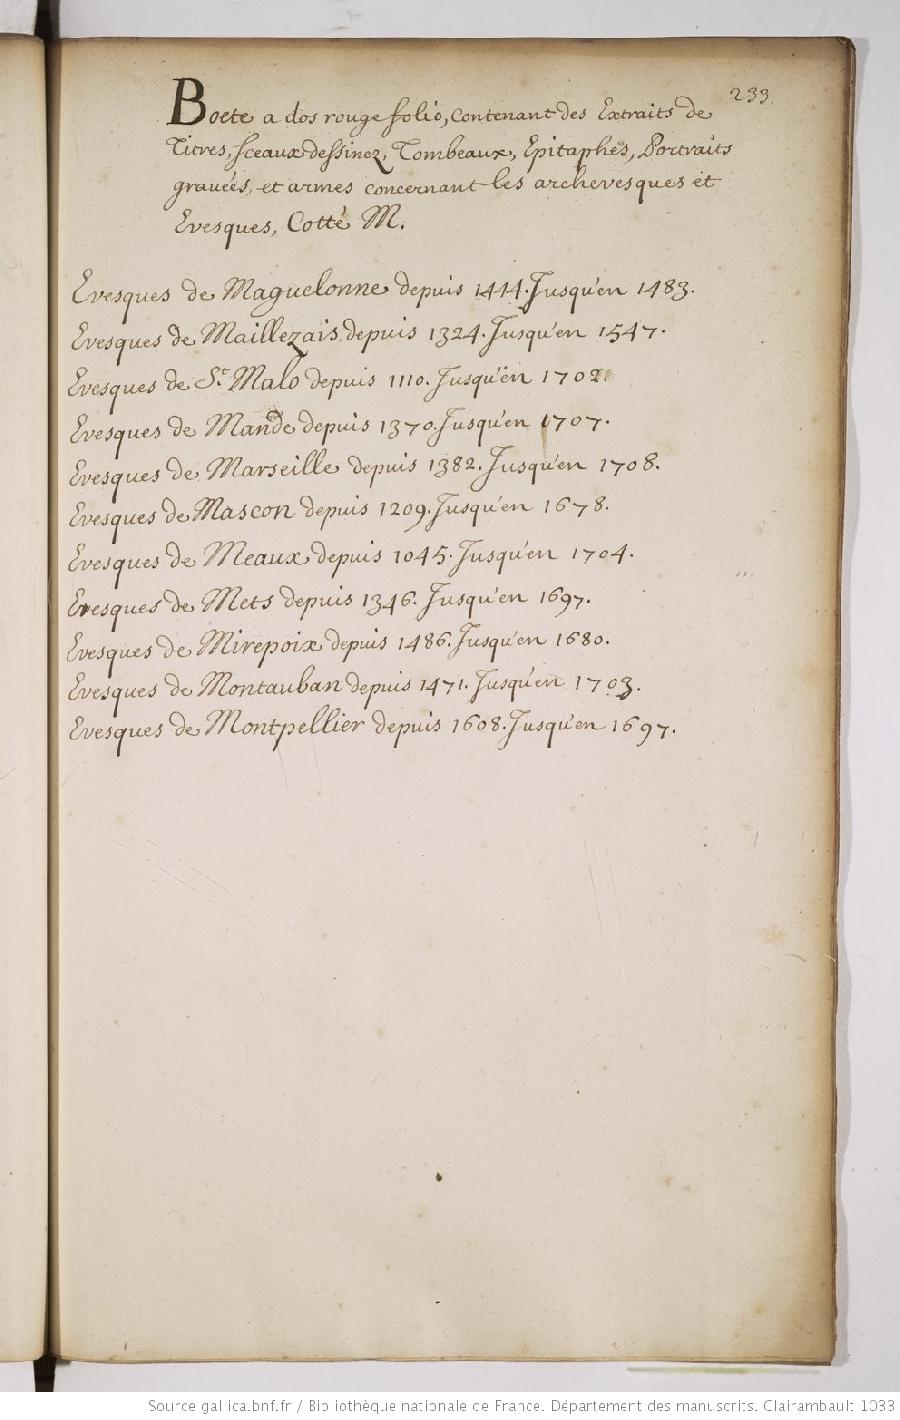 233.
Boete a dos rouge folio, contenant des Extraits de
Titres, sceaux dessinez, Tombeaux, Epitaphes, Portraits
gravées, et armes concernant les archevesques et
Evesques, Cotté M.
Evesques de Maguelonne depuis 1444. Jusqu'en 1483.
Evesques de Maillezais depuis 1324. Jusqu'en 1547.
Evesques de St. Malo depuis 1110. Jusqu'en 1702
Evesques de Mande depuis 1370. Jusqu'en 1707.
Evesques de Marseille depuis 1382. Jusqu'en 1708.
Evesques de Mascon depuis 1209. Jusqu'en 1678.
Evesques de Meaux depuis 1045. Jusqu'en 1704.
Evesques de Mets depuis 1346. Jusqu'en 1697.
Evesques de Mirepoix depuis 1486. Jusqu'en 1680.
Evesques de Montauban depuis 1471. Jusqu'en 1703.
Evesques de Montpellier depuis 1608. Jusqu'en 1697.
Source gallica.bnf.fr / Bibliothèque nationale de France. Département des manuscrits. Clairambault 1033